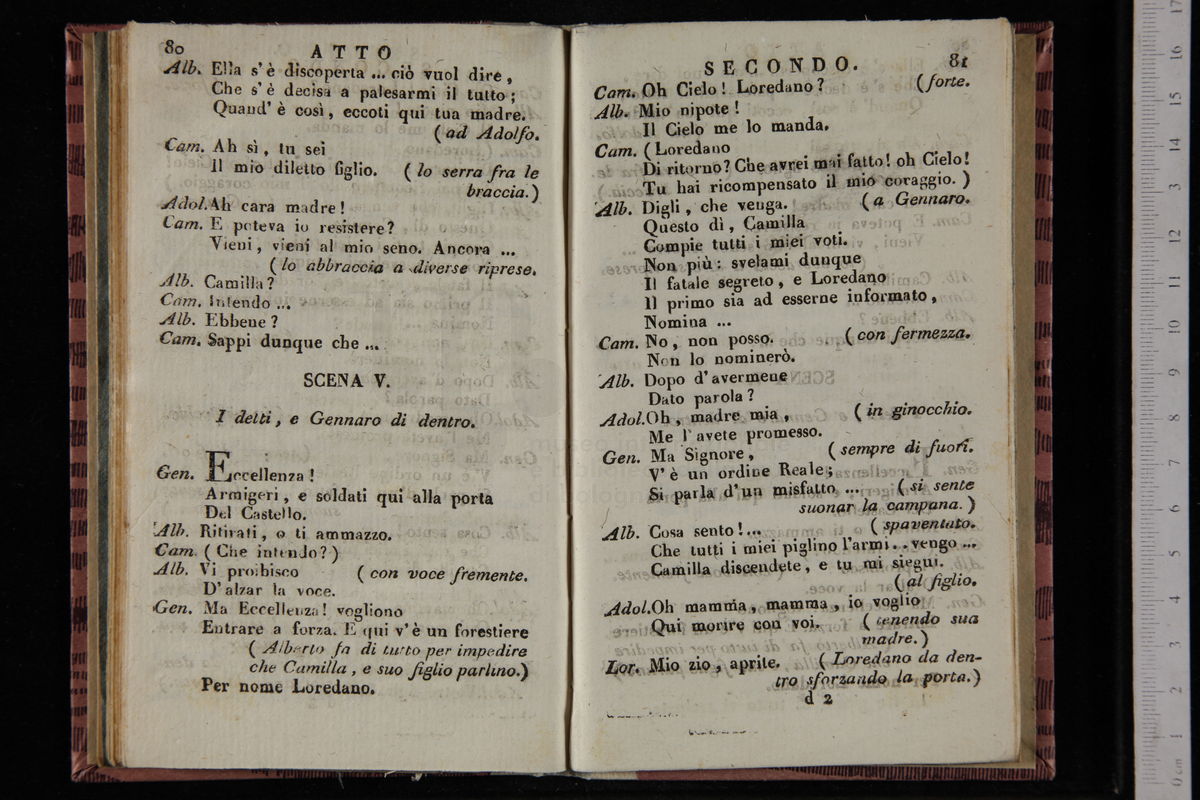 80 ATTO
Alb. Ella s'è discoperta ... ciò vuol dire,
Che s'è decisa a palesarmi il tutto;
Quand'è così, eccoti qui tua madre.
(ad Adolfo.
Cam. Ah sì, tu sei
Il mio diletto figlio. (lo serra fra le
braccia.)
Adol. Ah cara madre!
Cam. E poteva io resistere?
Vieni, vieni al mio seno. Ancora ...
(lo abbraccia a diverse riprese.
Alb. Camilla?
Cam. Intendo ...
Alb. Ebbene?
Cam. Sappi dunque che ...
SCENA V.
I detti, e Gennaro di dentro.
Gen. Eccellenza!
Armigeri, e soldati qui alla porta
Del Castello.
Alb. Ritirati, o ti ammazzo.
Cam. (Che intendo?)
Alb. Vi proibisco (con voce fremente.
D'alzar la voce.
Gen. Ma Eccellenza! vogliono
Entrare a forza. E qui v'è un forestiere
(Alberto fa di tutto per impedire
che Camilla, e suo figlio parlino.)
Per nome Loredano.
SECONDO. 81
Cam. Oh Cielo! Loredano? (forte.
Alb. Mio nipote!
Il Cielo me lo manda.
Cam. (Loredano
Di ritorno? Che avrei mai fatto! oh Cielo!
Tu hai ricompensato il mio coraggio.)
Alb. Digli, che venga. (a Gennaro.
Questo dì, Camilla
Compie tutti i miei voti.
Non più: svelami dunque
Il fatale segreto, e Loredano
Il primo sia ad esserne informato,
Nomina ...
Cam. No, non posso. (con fermezza.
Non lo nominerò.
Alb. Dopo d'avermene
Dato parola?
Adol. Oh, madre mia, (in ginocchio.
Me l'avete promesso.
Gen. Ma Signore, (sempre di fuori.
V'è un ordine Reale;
Si parla d'un misfatto ... (si sente
suonar la campana.)
Alb. Cosa sento!... (spaventato.
Che tutti i miei piglino l'armi.. vengo ...
Camilla discendete, e tu mi siegui.
(al figlio.
Adol. Oh mamma, mamma, io voglio
Qui morire con voi. (tenendo sua
madre.)
Lor. Mio zio, aprite. (Loredano da den-
tro sforzando la porta.)
d 2